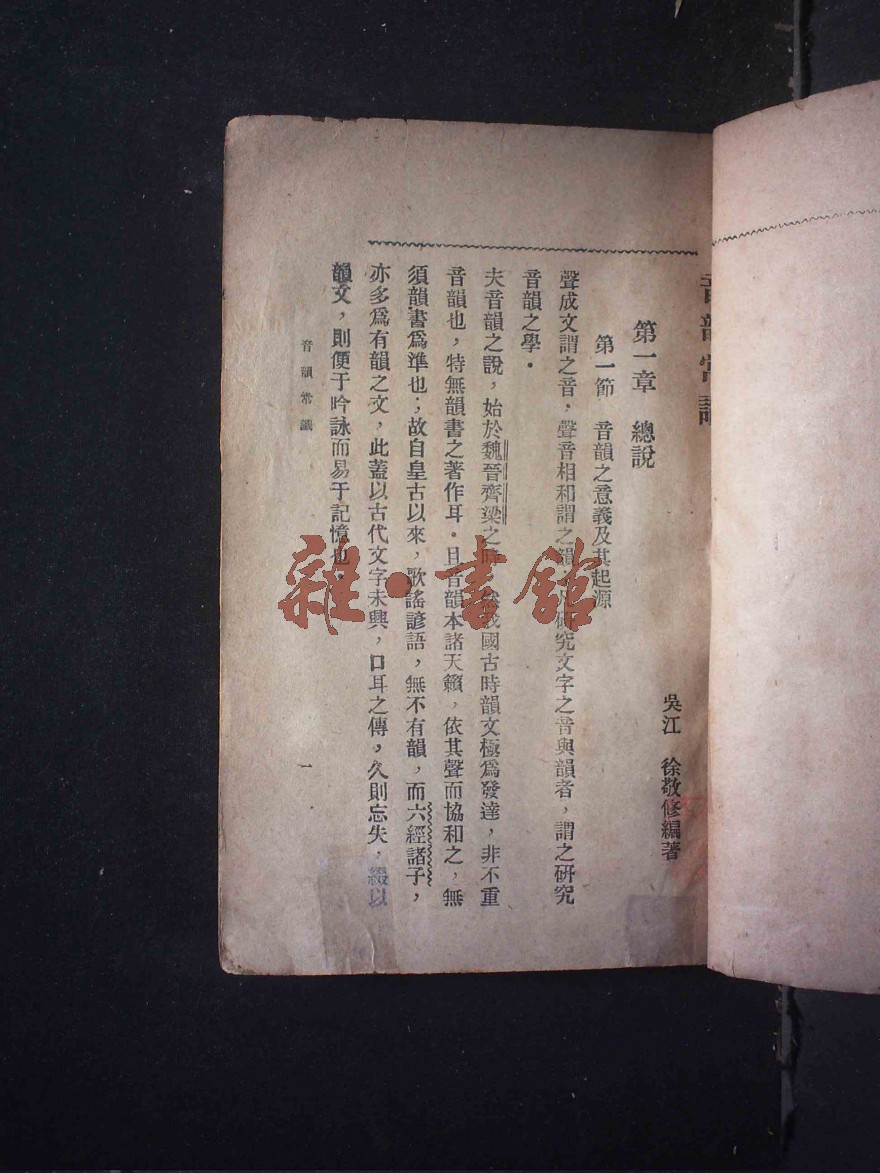 音韻常識
吳江　徐敬修編著
第一章　總說
第一節　音韻之意義及其起源
聲成文謂之音，聲音相和謂之韻，研究文字之音與韻者，謂之研究
音韻之學．
夫音韻之說，始於魏晉齊梁之時，然我國古時韻文極爲發達，非不重
音韻也，特無韻書之著作耳．且音韻本諸天籟，依其聲而協和之，無
須韻書爲準也；故自皇古以來，歌謠諺語，無不有韻，而六經諸子，
亦多爲有韻之文，此蓋以古代文字未興，口耳之傳，久則忘失，綴以
韻文，則便于吟詠而易于記憶也．
音韻常識
一
雜·書館